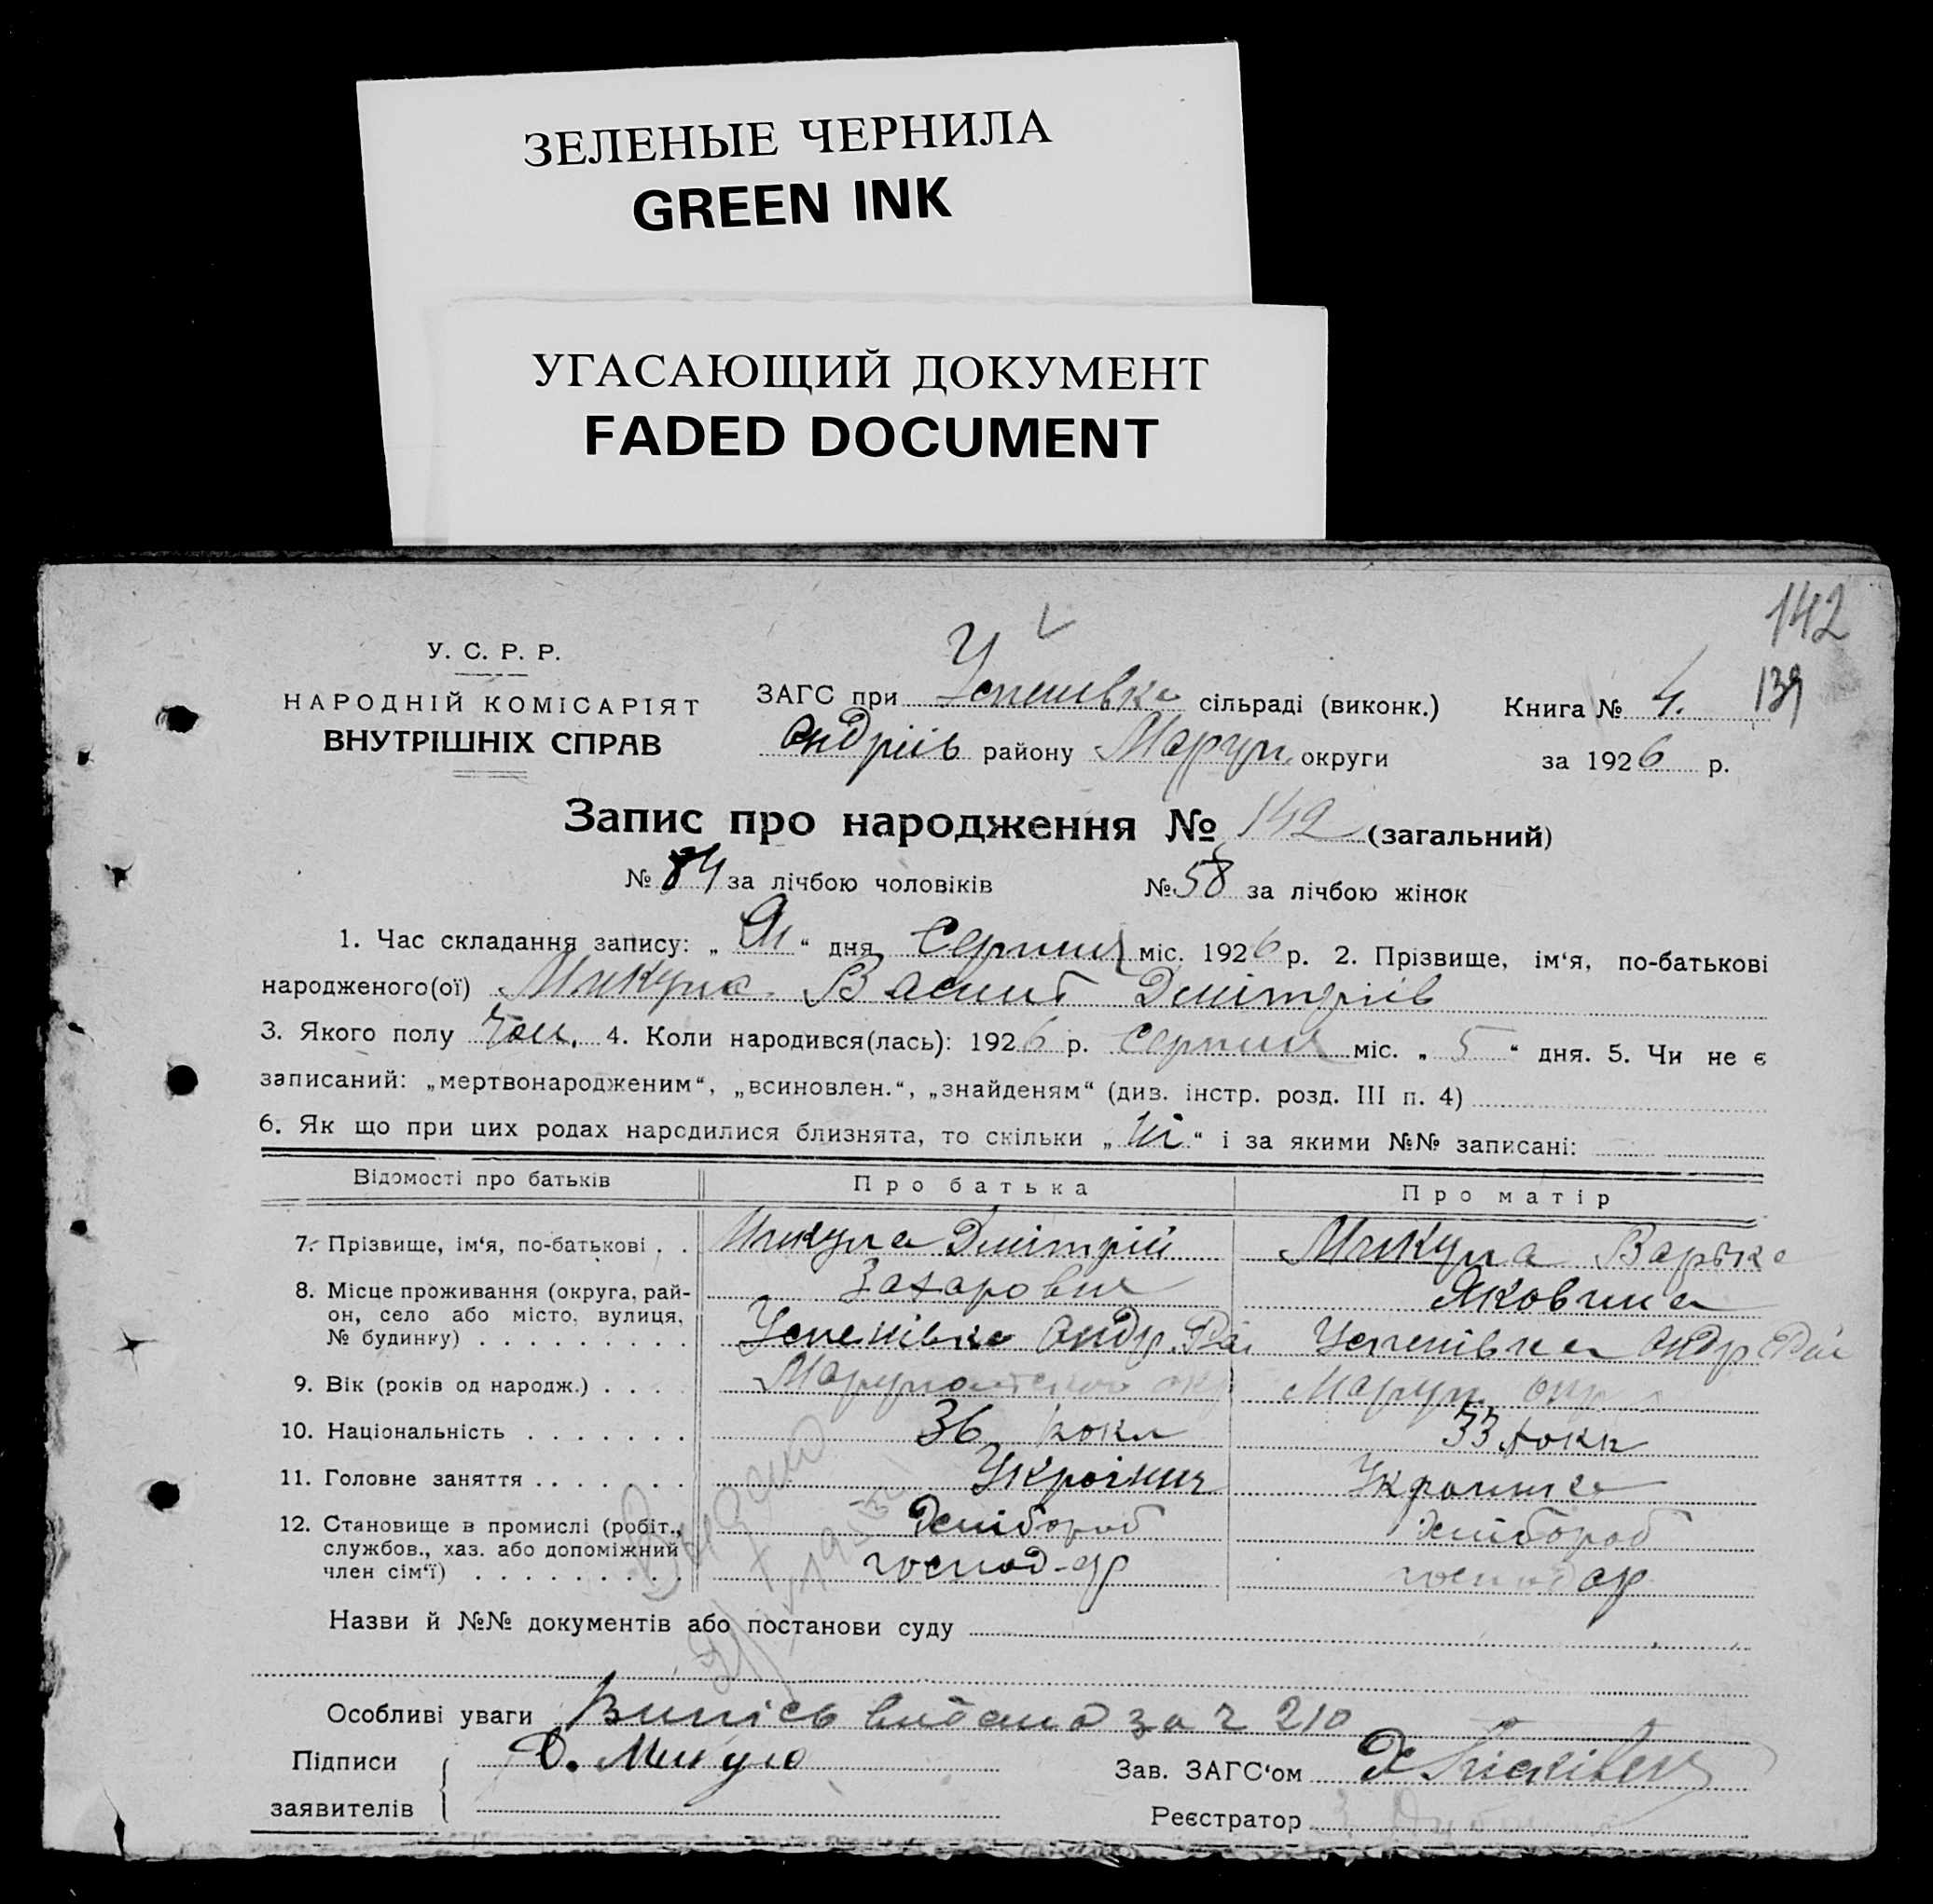 ЗЕЛЕНЫЕ ЧЕРНИЛА
GREEN INK
УГАСАЮЩИЙ ДОКУМЕНТ
FADED DOCUMENT
142
139
У. С. Р. Р.
НАРОДНІЙ КОМІСАРІЯТ
ВНУТРІШНІХ СПРАВ
ЗАГС при Успенівка сільраді (виконк.) Книга № 4.
Андріїв району Маріуп. округи за 1926 р.
Запис про народження № 142 (загальний)
№ 84 за лічбою чоловіків № 58 за лічбою жінок
1. Час складання запису: „ “ дня Серпня міс. 1926 р. 2. Прізвище, ім‘я, по-батькові
народженого(ої) Микула Дмітріїв
3. Якого полу чол. 4. Коли народився(лась): 1926 р. Серпня міс. „ 5 “ дня. 5. Чи не є
записаний: „мертвонародженим“, „всиновлен.“, „знайденям“ (див. інстр. розд. III п. 4)
6. Як що при цих родах народилися близнята, то скільки „ні“ і за якими №№ записані:
Відомості про батьків Про батька Про матір
7. Прізвище, ім‘я, по-батькові . . Микула Дмітрій Микула Варька
8. Місце проживання (округа, рай- Захарович Яковлина
он, село або місто, вулиця,
№ будинку) . . . . . . . . . Успенівка Андр. Рай Успенівка Андр Рай
9. Вік (років од народж.) . . . . Маріуп. окр
10. Національність . . . . . . . 36 роки 33 роки
11. Головне заняття . . . . . . . Українец Українка
12. Становище в промислі (робіт., Хлібороб Хлібороб
службов., хаз. або допоміжний господар господар
член сім‘ї) . . . . . . . . .
Назви й №№ документів або постанови суду
Особливі уваги Випісь видана за ч 210
Підписи Д. Микула Зав. ЗАГС‘ом
заявителів Реєстратор